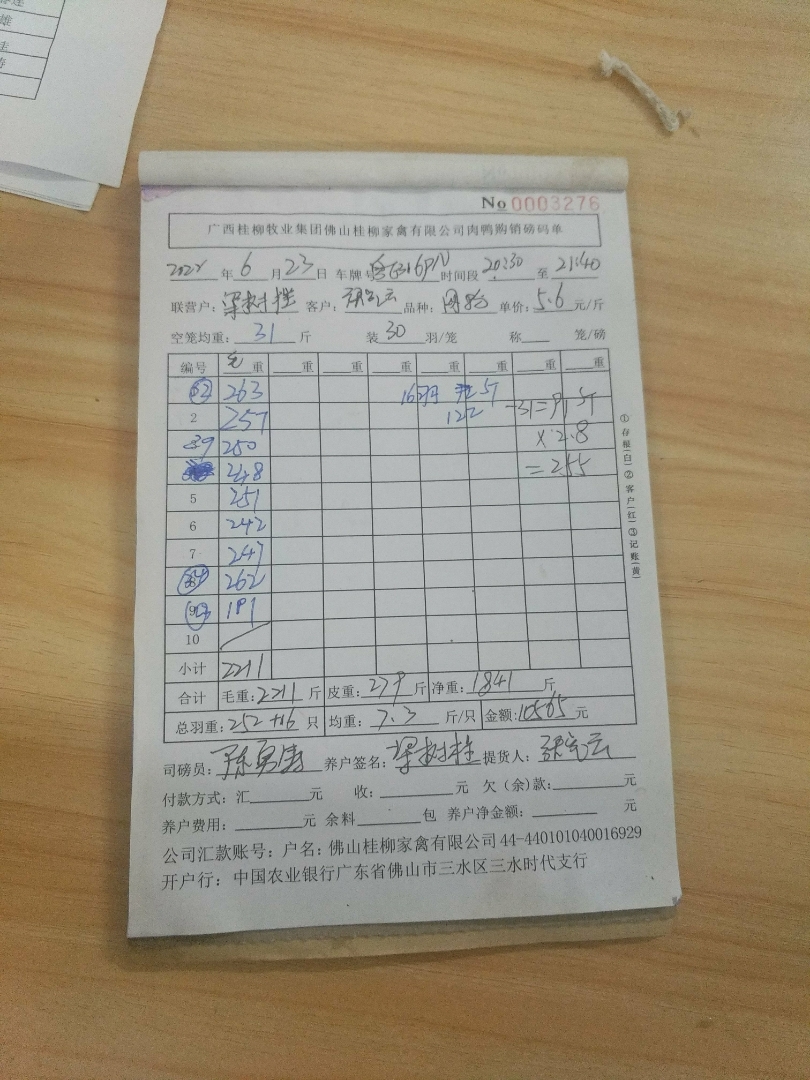 No 0003276
广西桂柳牧业集团佛山桂柳家禽有限公司肉鸭购销磅码单
2022 年 6 月 23 日 车牌号 时间段 20:30 至 21:40
联营户: 梁树桂 客户: 品种: 单价: 5.6 元/斤
空笼均重: 31 斤 装 30 羽/笼 称 笼/磅
编号 毛重 重 重 重 重 重 重 重
263
2 257 122 -31=91 斤
39 250 ×2.8
248 =255
5 251
6 242
7 247
262
9 191
10
小计 2211
合计 毛重: 2211 斤 皮重: 279 斤 净重: 1841 斤
总羽重: 252+16 只 均重: 7.3 斤/只 金额: 10565 元
司磅员: 陈勇涛 养户签名: 梁树桂 提货人:
付款方式: 汇 元 收: 元 欠(余)款: 元
养户费用: 元 余料 包 养户净金额: 元
公司汇款账号: 户名: 佛山桂柳家禽有限公司 44-440101040016929
开户行: 中国农业银行广东省佛山市三水区三水时代支行
①存根(白)②客户(红)③记账(黄)